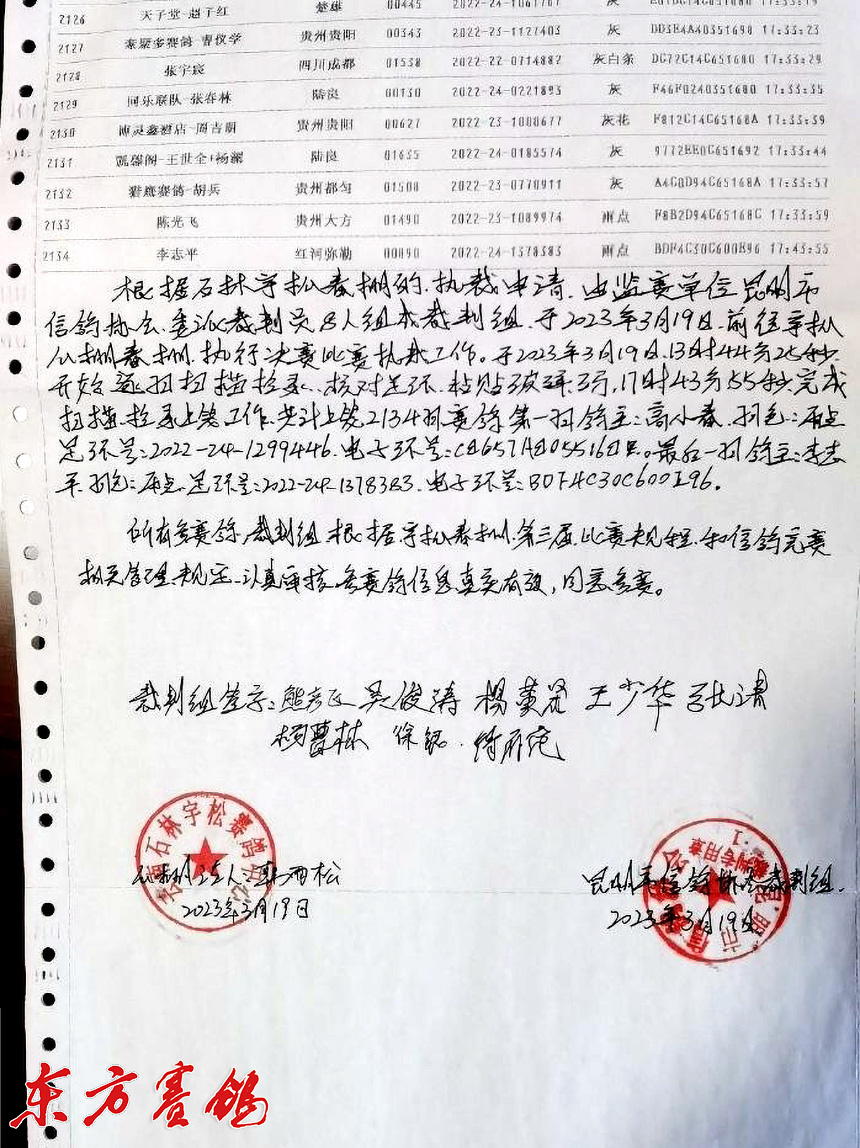 2126 天子堂-赵子红 楚雄 00445 2022-24-1061707 灰 17:33:19
2127 贵州贵阳 00343 2022-23-1127403 灰 DD3E4A40351690 17:33:23
2128 张宇宸 四川成都 01538 2022-22-0714882 灰白条 DC72C14C651680 17:33:29
2129 同乐联队-张春林 陆良 00130 2022-24-0221893 灰 F46F0240351680 17:33:35
2130 博灵鑫酒店-周吉朝 贵州贵阳 00627 2022-23-1000677 灰花 F812C14C65168A 17:33:39
2131 凯馨阁-王世全+杨澜 陆良 01635 2022-24-0185574 灰 9772EE0C651692 17:33:44
2132 猎鹰赛鸽-胡兵 贵州都匀 01508 2022-23-0770911 灰 A4C0D94C65168A 17:33:57
2133 陈光飞 贵州大方 01490 2022-23-1089974 雨点 F8B2D94C65168C 17:33:59
2134 李志平 红河弥勒 00890 2022-24-1378383 雨点 BDF4C30C600E96 17:43:55
根据石林宇松春棚的执裁申请,由监赛单位昆明市
信鸽协会委派裁判员8人组成裁判组,于2023年3月19日前往宇松
公棚春棚,执行决赛比赛执裁工作。于2023年3月19日13时44分25秒
开始逐羽扫描检录、核对足环、粘贴,17时43分55秒完成
扫描检录上笼工作,共计上笼2134羽赛鸽第一羽鸽主:高小春.羽色:雨点
足环号:2022-24-1299446.电子环号:。最后一羽鸽主:李志
平.羽色:雨点.足环号:2022-24-1378383.电子环号:BDF4C30C600E96。
所有参赛鸽,裁判组根据宇松春棚第三届比赛规程和信鸽竞赛
相关管理规定,认真审核参赛鸽信息真实有效,同意参赛。
裁判组签字: 吴俊涛 王少华 张清
石林宇松赛鸽
公棚
2023年3月19日
昆明市信鸽协会裁判组.
2023年3月19日
裁判专用章
东方赛鸽